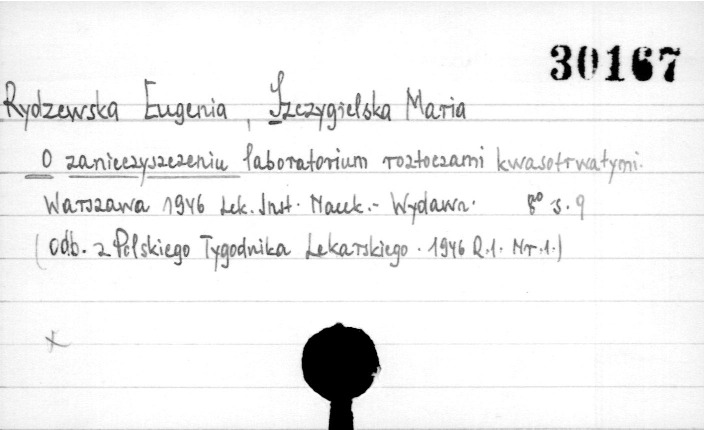 30167
Rydzewska Eugenia, Szczygielska Maria
O zanieczyszczeniu laboratorium roztoczami kwasotrwałymi.
Warszawa 1946 Lek. Inst. Nauk.- Wydawn. 8° s. 9
(odb. z Polskiego Tygodnika Lekarskiego. 1946 R.1. Nr.1.)
x